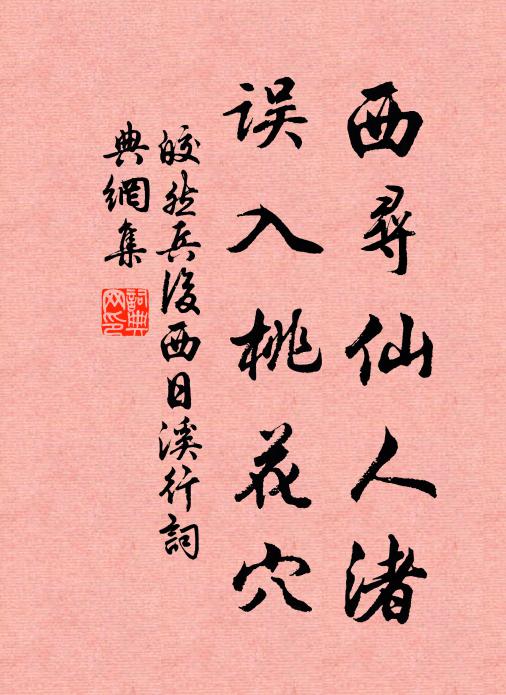 西尋仙人渚
误入桃花穴
皎然兵後西日溪行詞
典網集
詞典網印